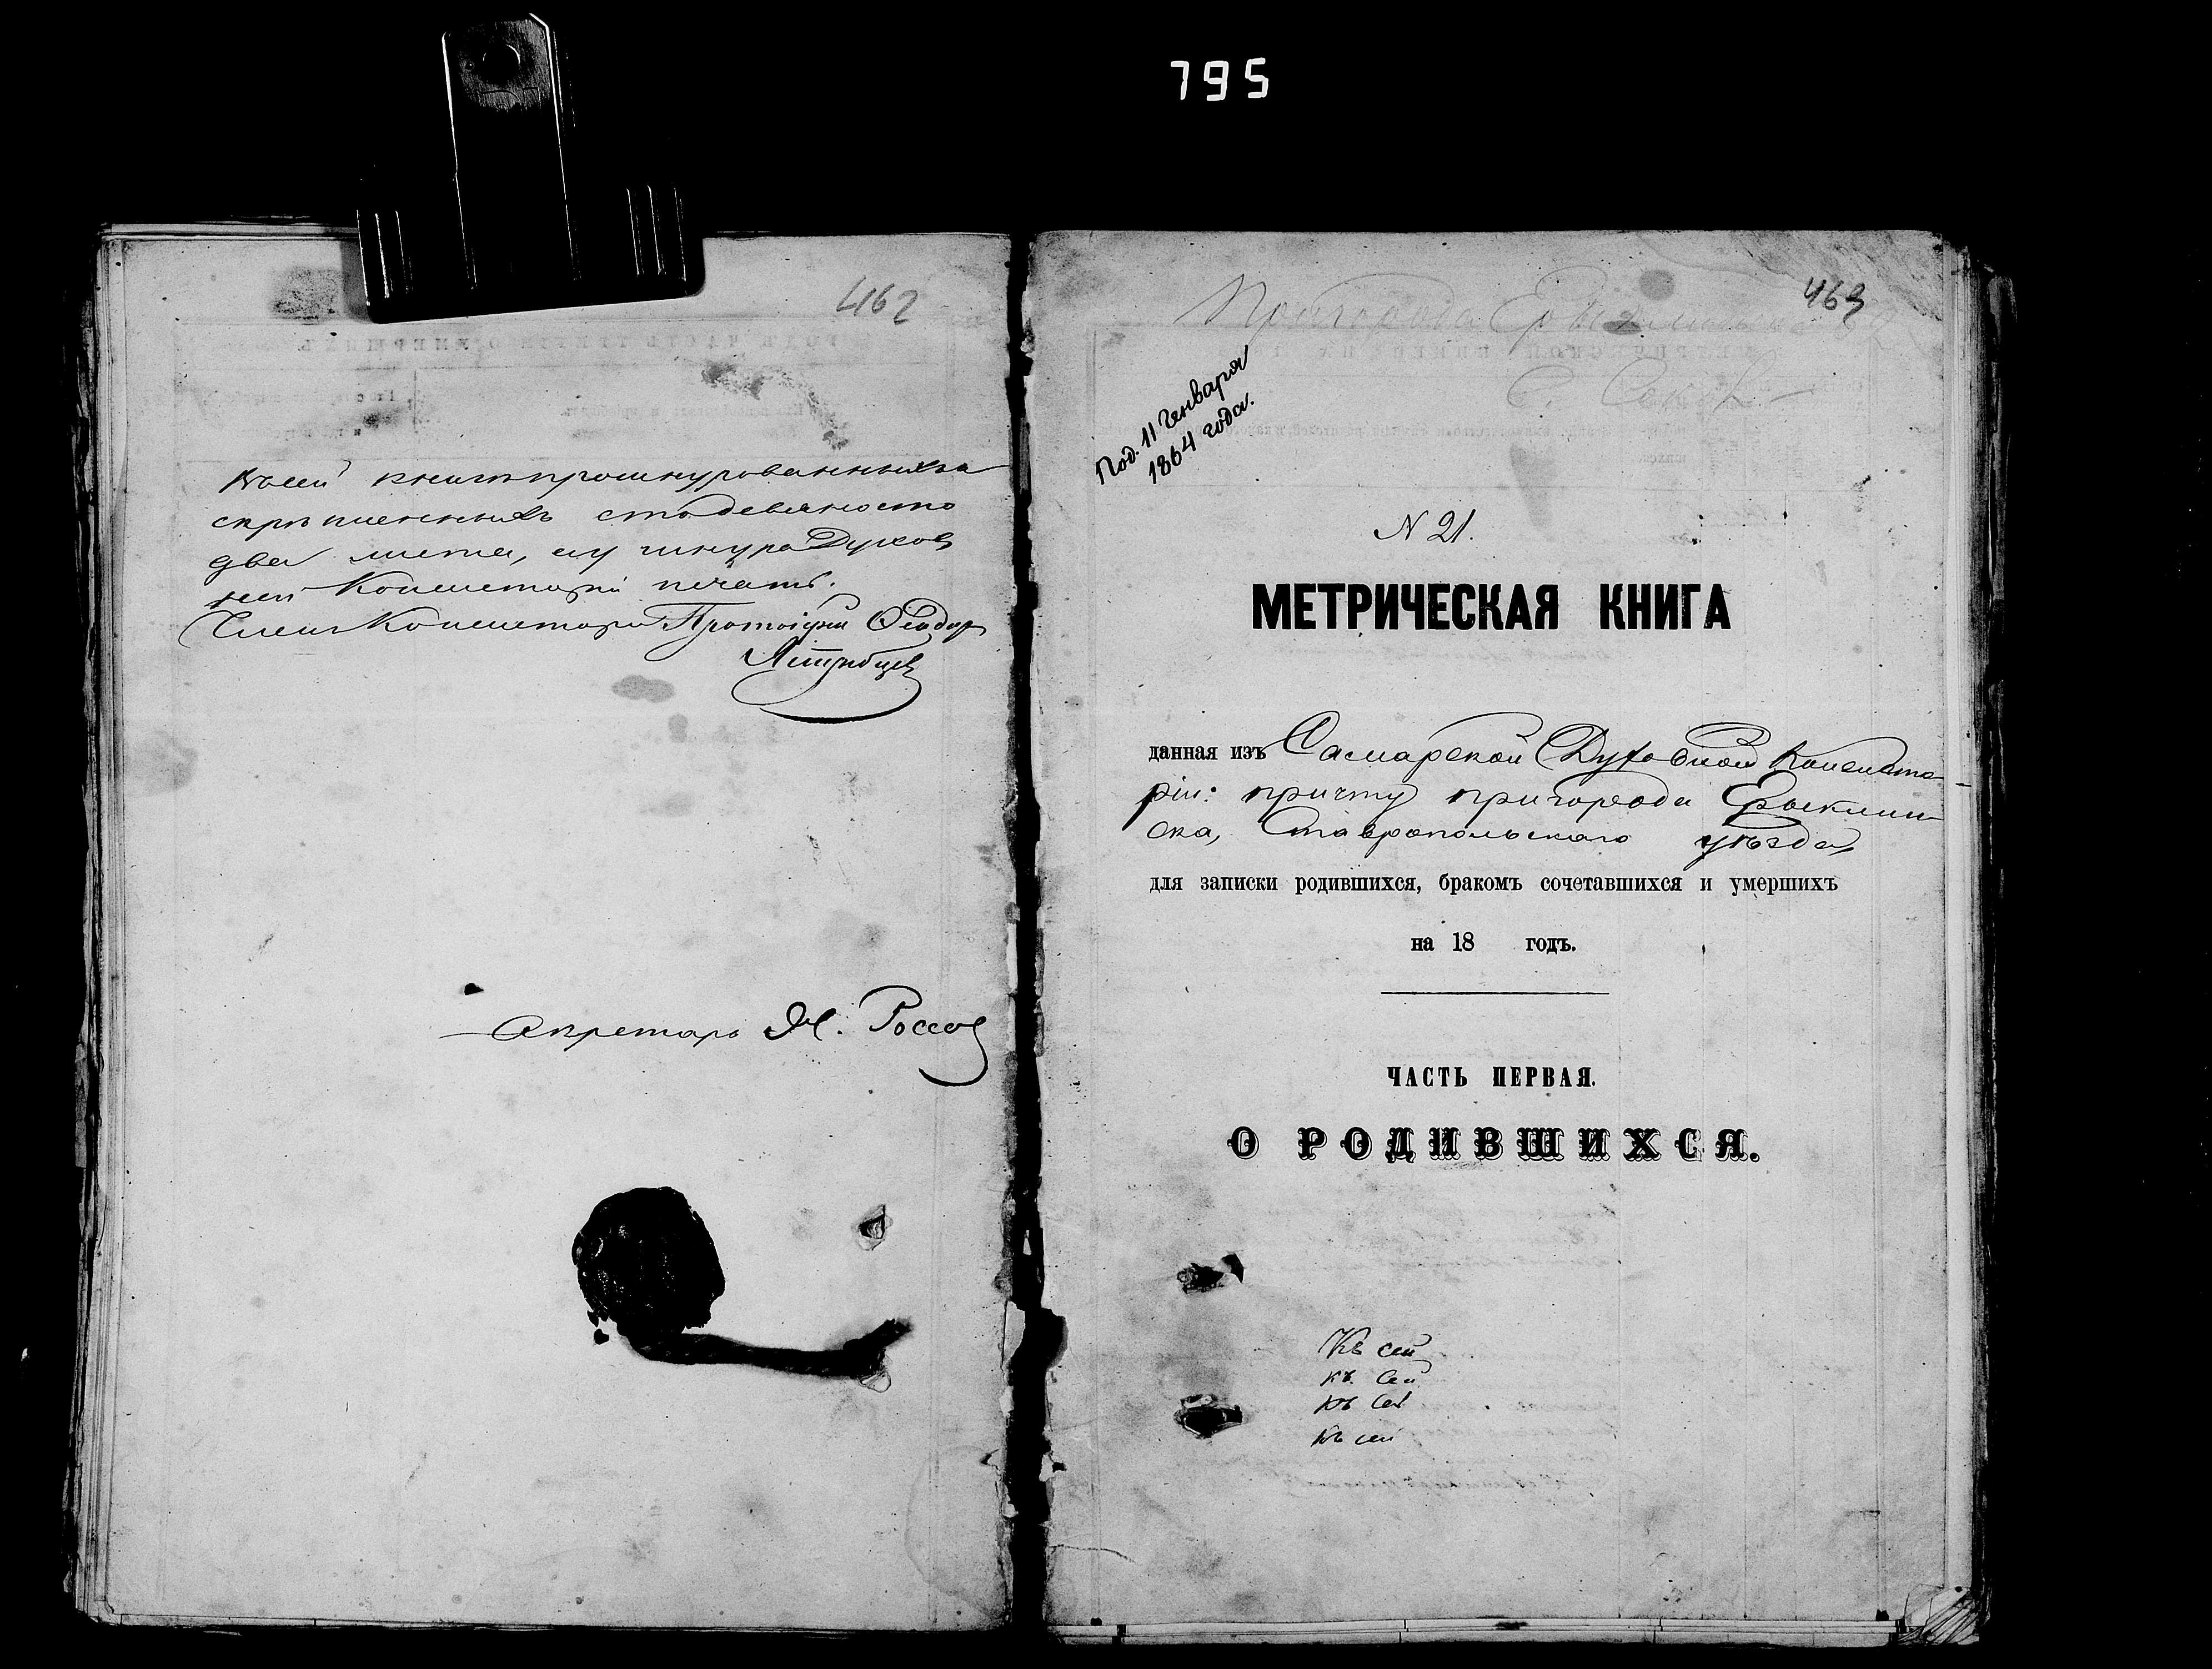 795
462
Въ сей книгѣ прошнурованныхъ и
скрѣпленныхъ сто девяносто
два листа, ея у шнура Духов
ной Консисторіи печать.
Членъ Консисторіи Протоіерей Ѳеодоръ
Ястребцевъ
Секретарь М. Россовъ
463
Пригорода Ерыклинска
Под. 11 Генваря
1864 года.
N 21.
МЕТРИЧЕСКАЯ КНИГА
данная изъ Самарской Духовной Консисто-
ріи: причту пригорода Ерыклин
ска, Ставропольскаго уѣзда,
для записки родившихся, бракомъ сочетавшихся и умершихъ
на 18 годъ.
ЧАСТЬ ПЕРВАЯ.
О РОДИВШИХСЯ.
Къ сей
къ. Сей
къ Сей
Къ сей